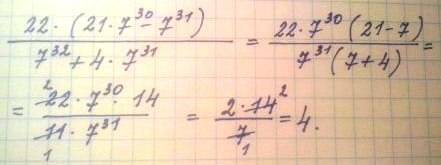 22 · (21 · 7³⁰ - 7³¹) / 7³² + 4 · 7³¹ = 22 · 7³⁰ (21 - 7) / 7³¹ (7 + 4) =
= ²22 · 7³⁰ · 14 / 11₁ · 7³¹ = 2 · 14² / 7₁ = 4.